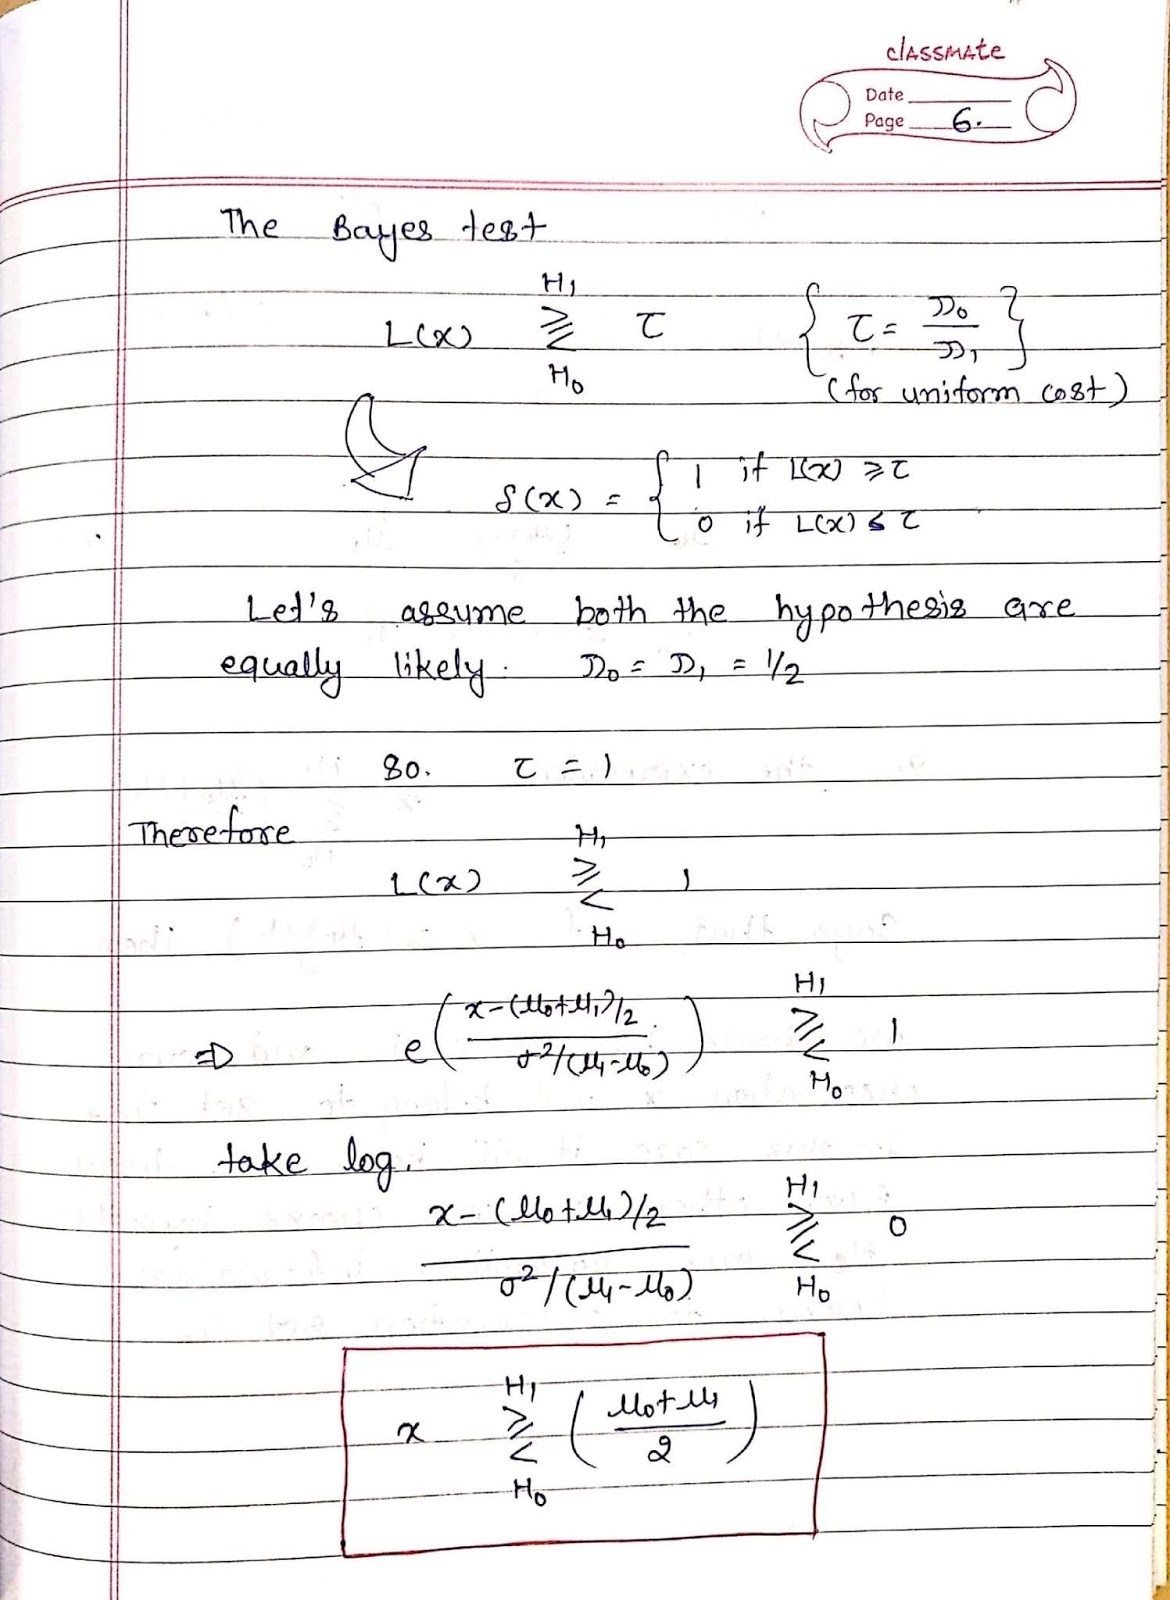 classmate
Date
Page 6.
The Bayes test
H₁
L(x) ≷ τ { τ = π₀/π₁ }
H₀
(for uniform cost)
δ(x) = { 1 if L(x) ≥ τ
0 if L(x) ≤ τ
Let's assume both the hypothesis are
equally likely. π₀ = π₁ = 1/2
So. τ = 1
Therefore
H₁
L(x) ≷ 1
H₀
⇒ e^((x-(μ₀+μ₁)/2)/(σ²/(μ₁-μ₀))) ≷ 1
H₁
H₀
take log.
H₁
(x-(μ₀+μ₁)/2)/(σ²/(μ₁-μ₀)) ≷ 0
H₀
H₁
x ≷ ((μ₀+μ₁)/2)
H₀